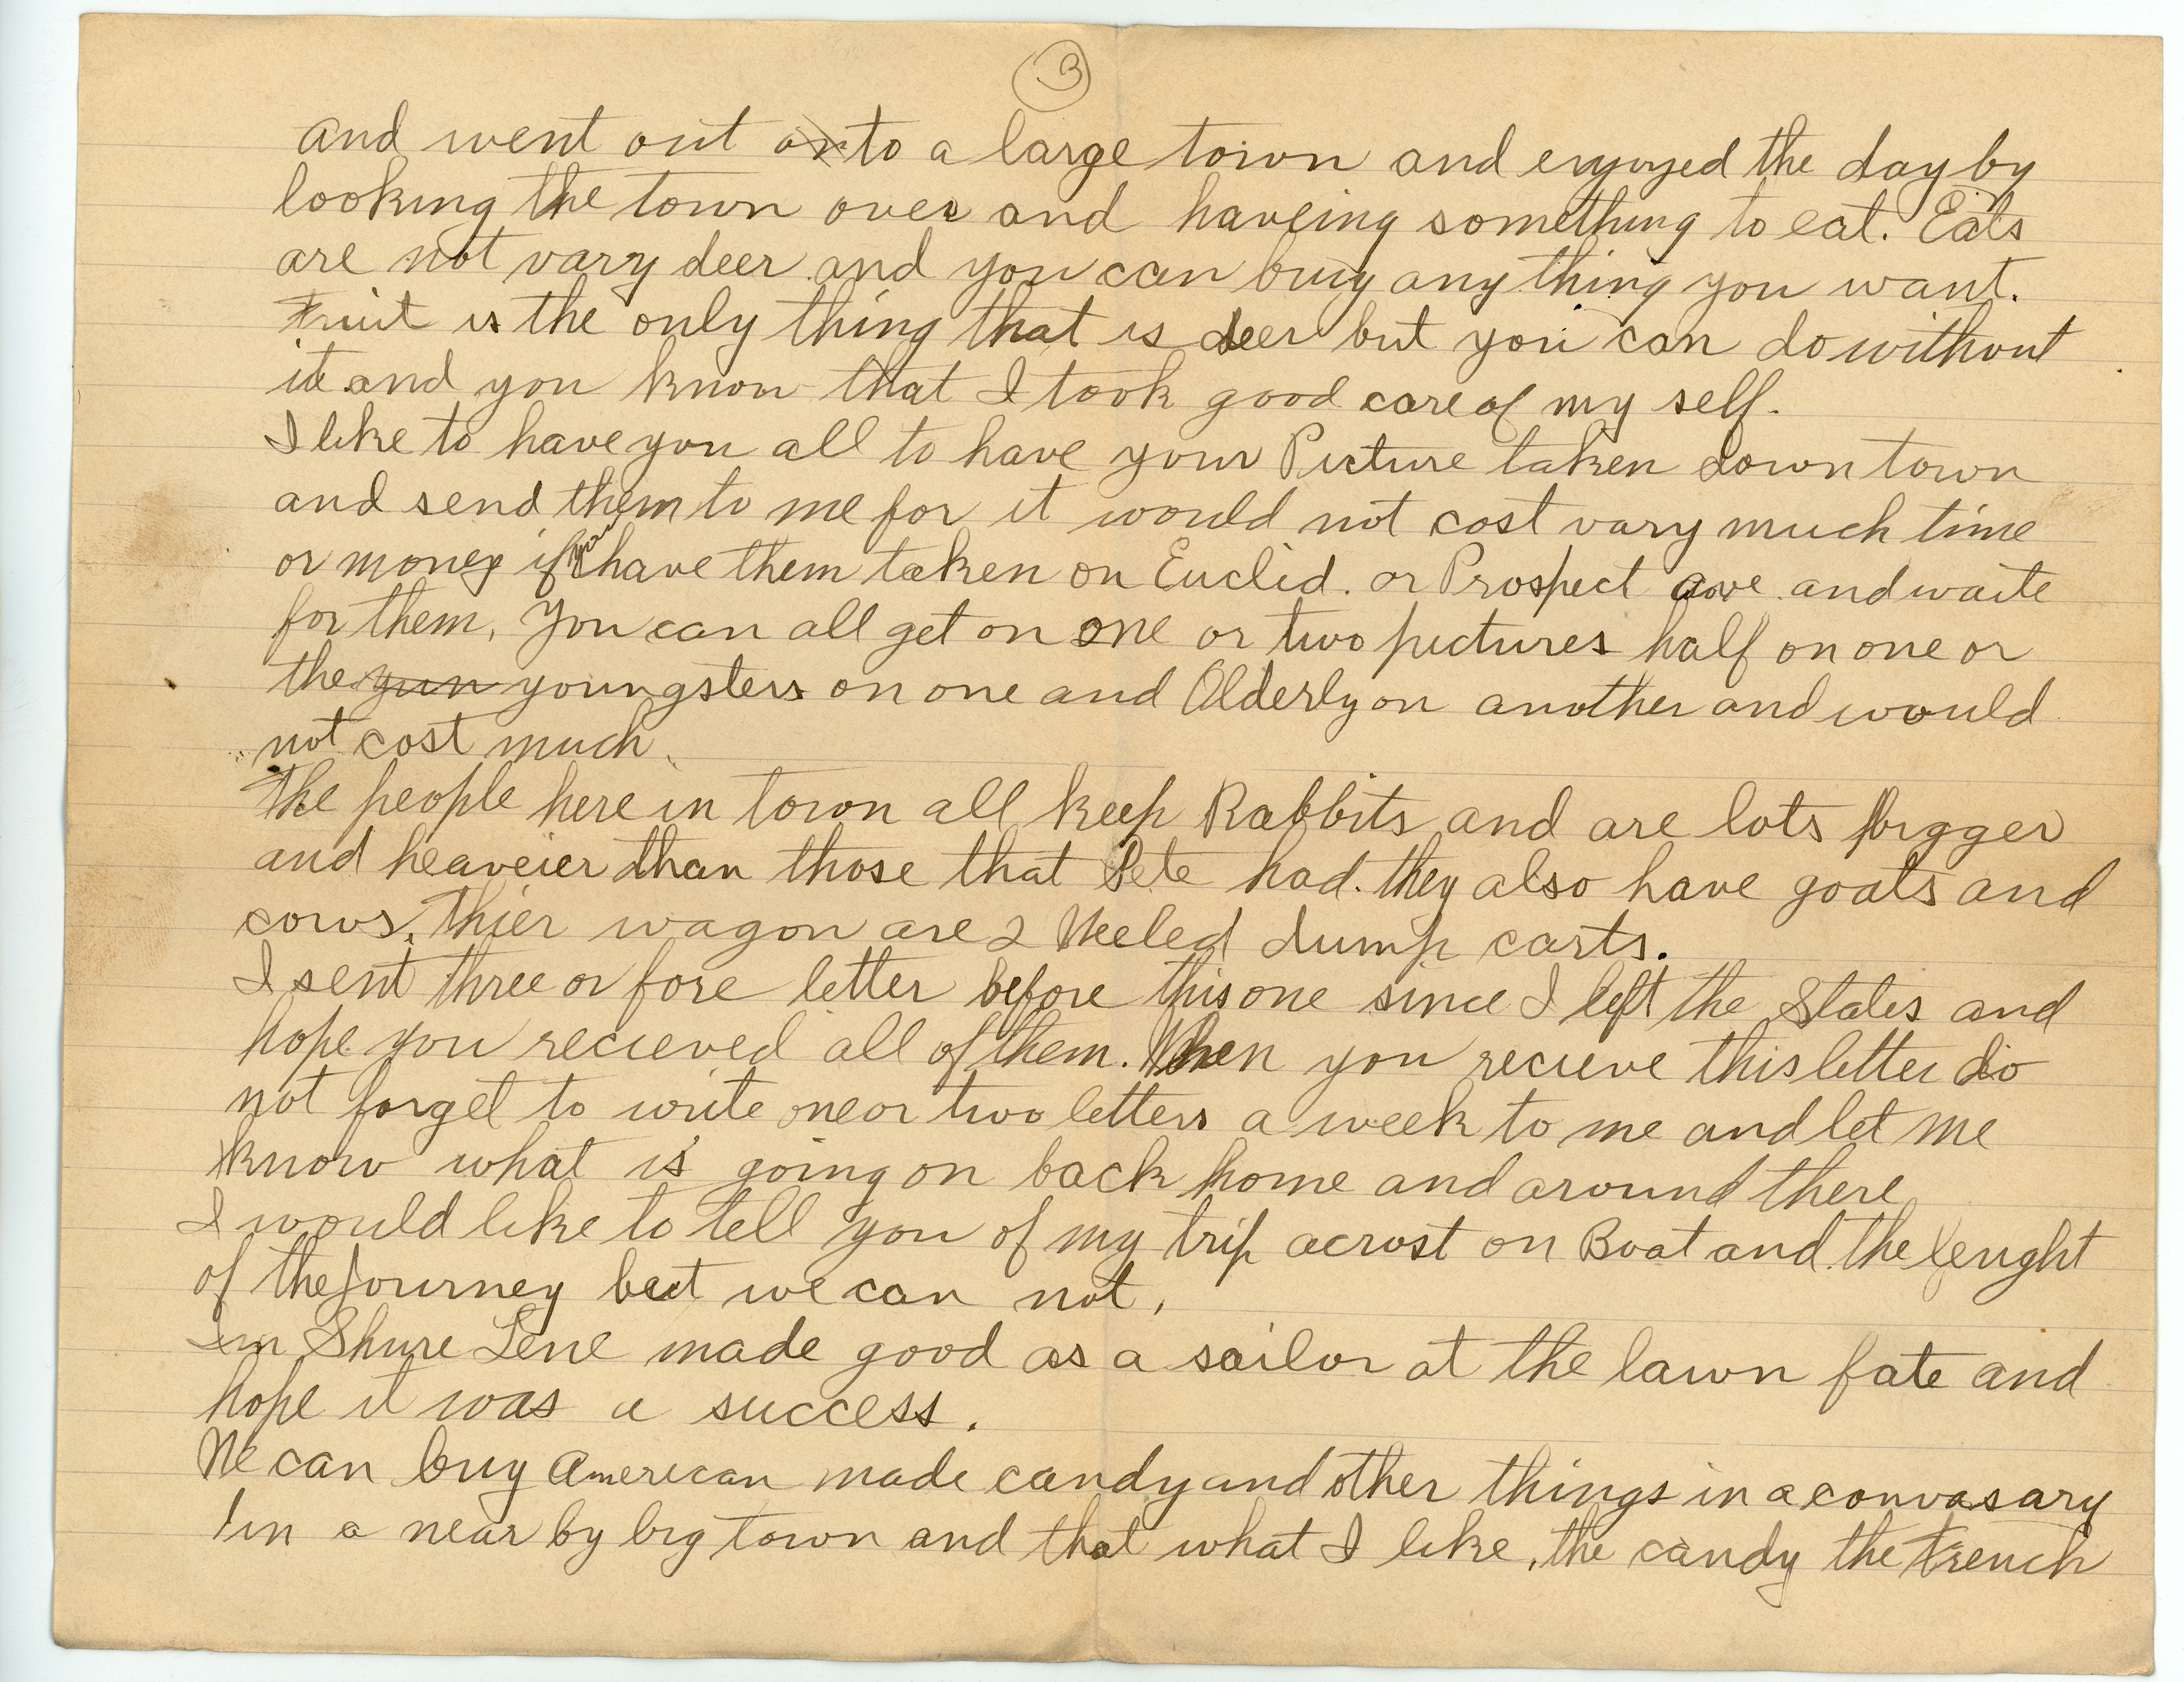 3
and went out onto a large town and enjoyed the day by
looking the town over and haveing something to eat. Eats
are not vary deer and you can buy any thing you want.
Fruit is the only thing that is deer but you can do without
it and you know that I took good care of my self.
I like to have you all to have your Picture taken down town
and send them to me for it would not cost vary much time
or money if you have them taken on Euclid. or Prospect ave and waite
for them. You can all get on one or two pictures half on one or
the yun youngsters on one and Olderly on another and would
not cost much.
The people here in town all keep Rabbits and are lots bigger
and heaveier than those that Pete had. they also have goats and
cows. Thier wagon are 2 Weeled dump carts.
I sent three or fore letter before this one since I left the States and
hope you recieved all of them. When you recieve this letter do
not forget to write one or two letters a week to me and let me
know what is going on back home and around there
I would like to tell you of my trip acrost on Boat and the lenght
of the Journey but we can not.
Im Shure Lene made good as a sailor at the lawn fate and
hope it was a success.
We can buy American made candy and other things in a convasary
in a near by big town and that what I like, the candy the French